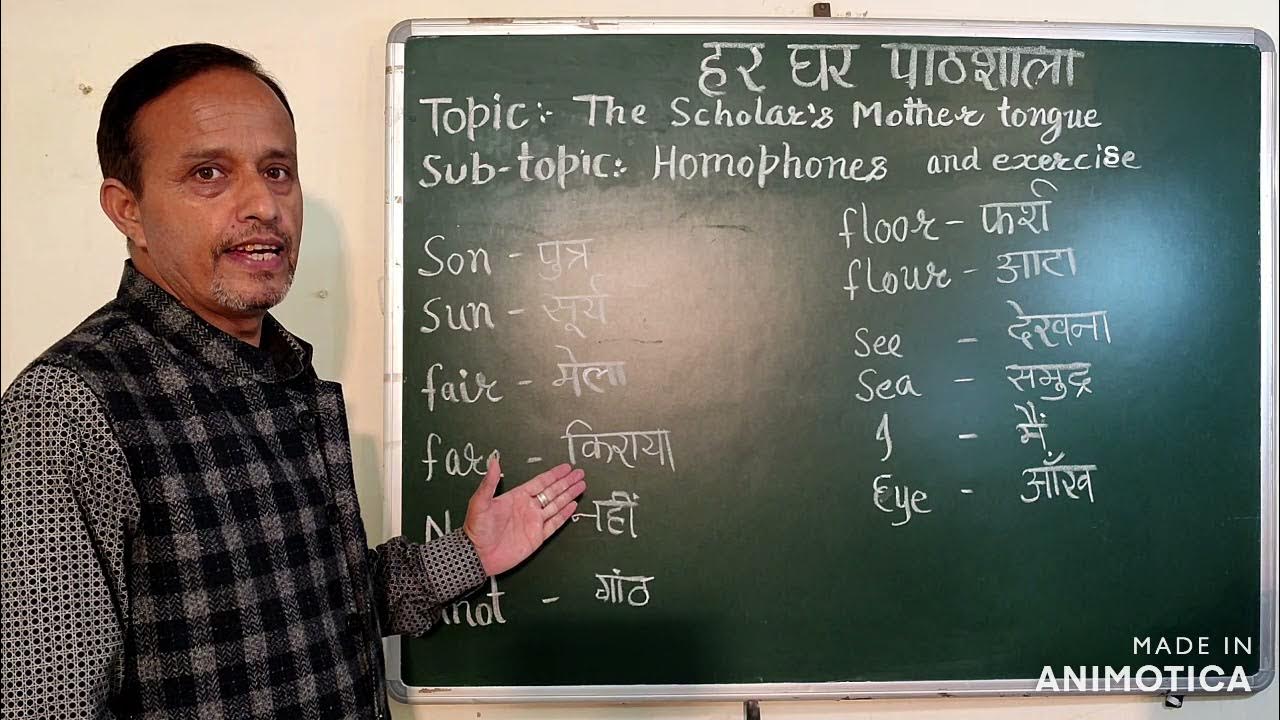 हर घर पाठशाला
Topic:- The Scholar's Mother tongue
Sub-topic:- Homophones and exercise
Son - पुत्र
Sun - सूर्य
fair - मेला
fare - किराया
नहीं
- गांठ
floor - फर्श
flour - आटा
See - देखना
Sea - समुद्र
I - मैं
Eye - आँख
MADE IN
ANIMOTICA